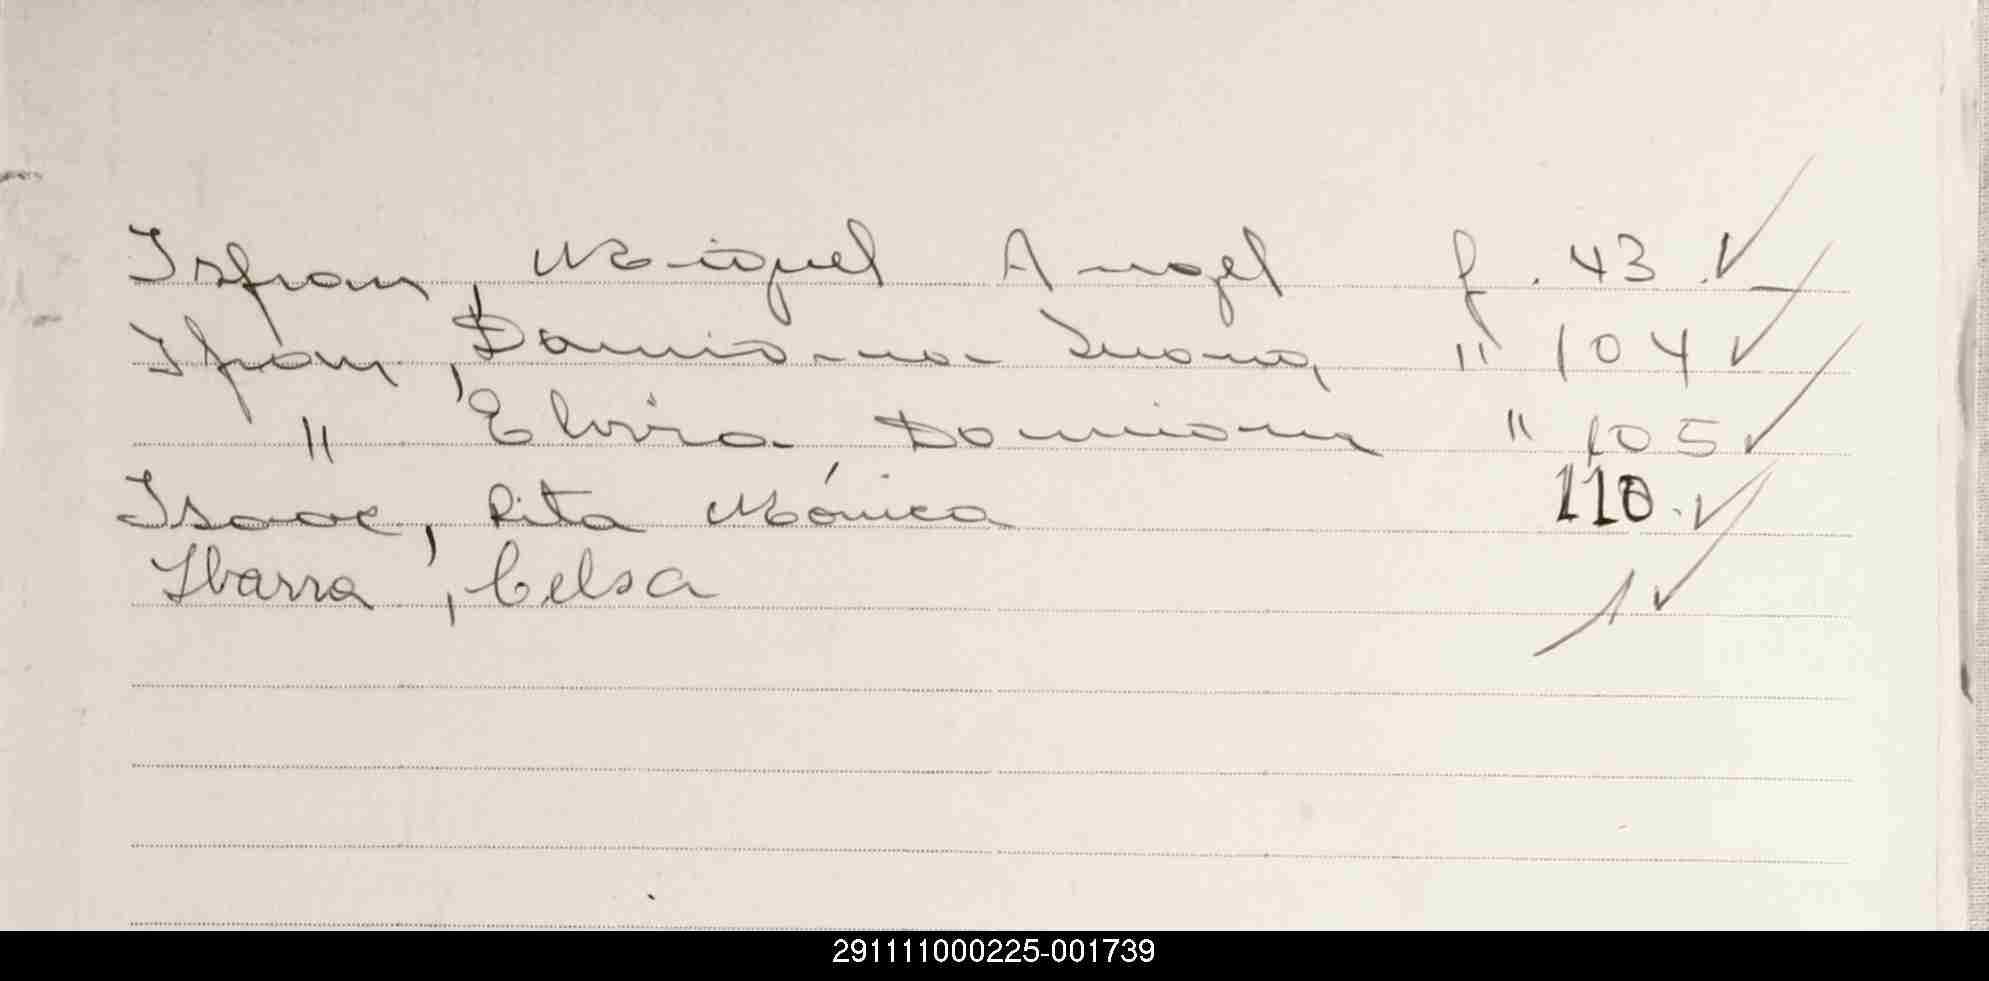 Isfran, Miguel Angel f. 43. ✓
Ifrán, Damiana Juana " 104 ✓
" Elvira Damiana " 105 ✓
Isaac, Rita Mónica 110. ✓
Ibarra, Celsa 1 ✓
291111000225-001739